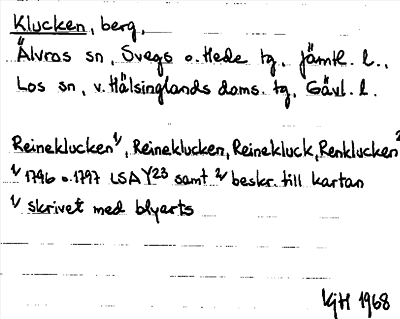 Klucken, berg,
Älvros sn, Svegs o. Hede tg, Jämtl. l.,
Los sn, v. Hälsinglands doms. tg, Gävl. l.
Reineklucken 1/, Reineklucken, Reinekluck, Renklucken 2
1/ 1796 o. 1797 LSA Y23 samt 2/ beskr. till kartan
1/ skrivet med blyarts
KjH 1968